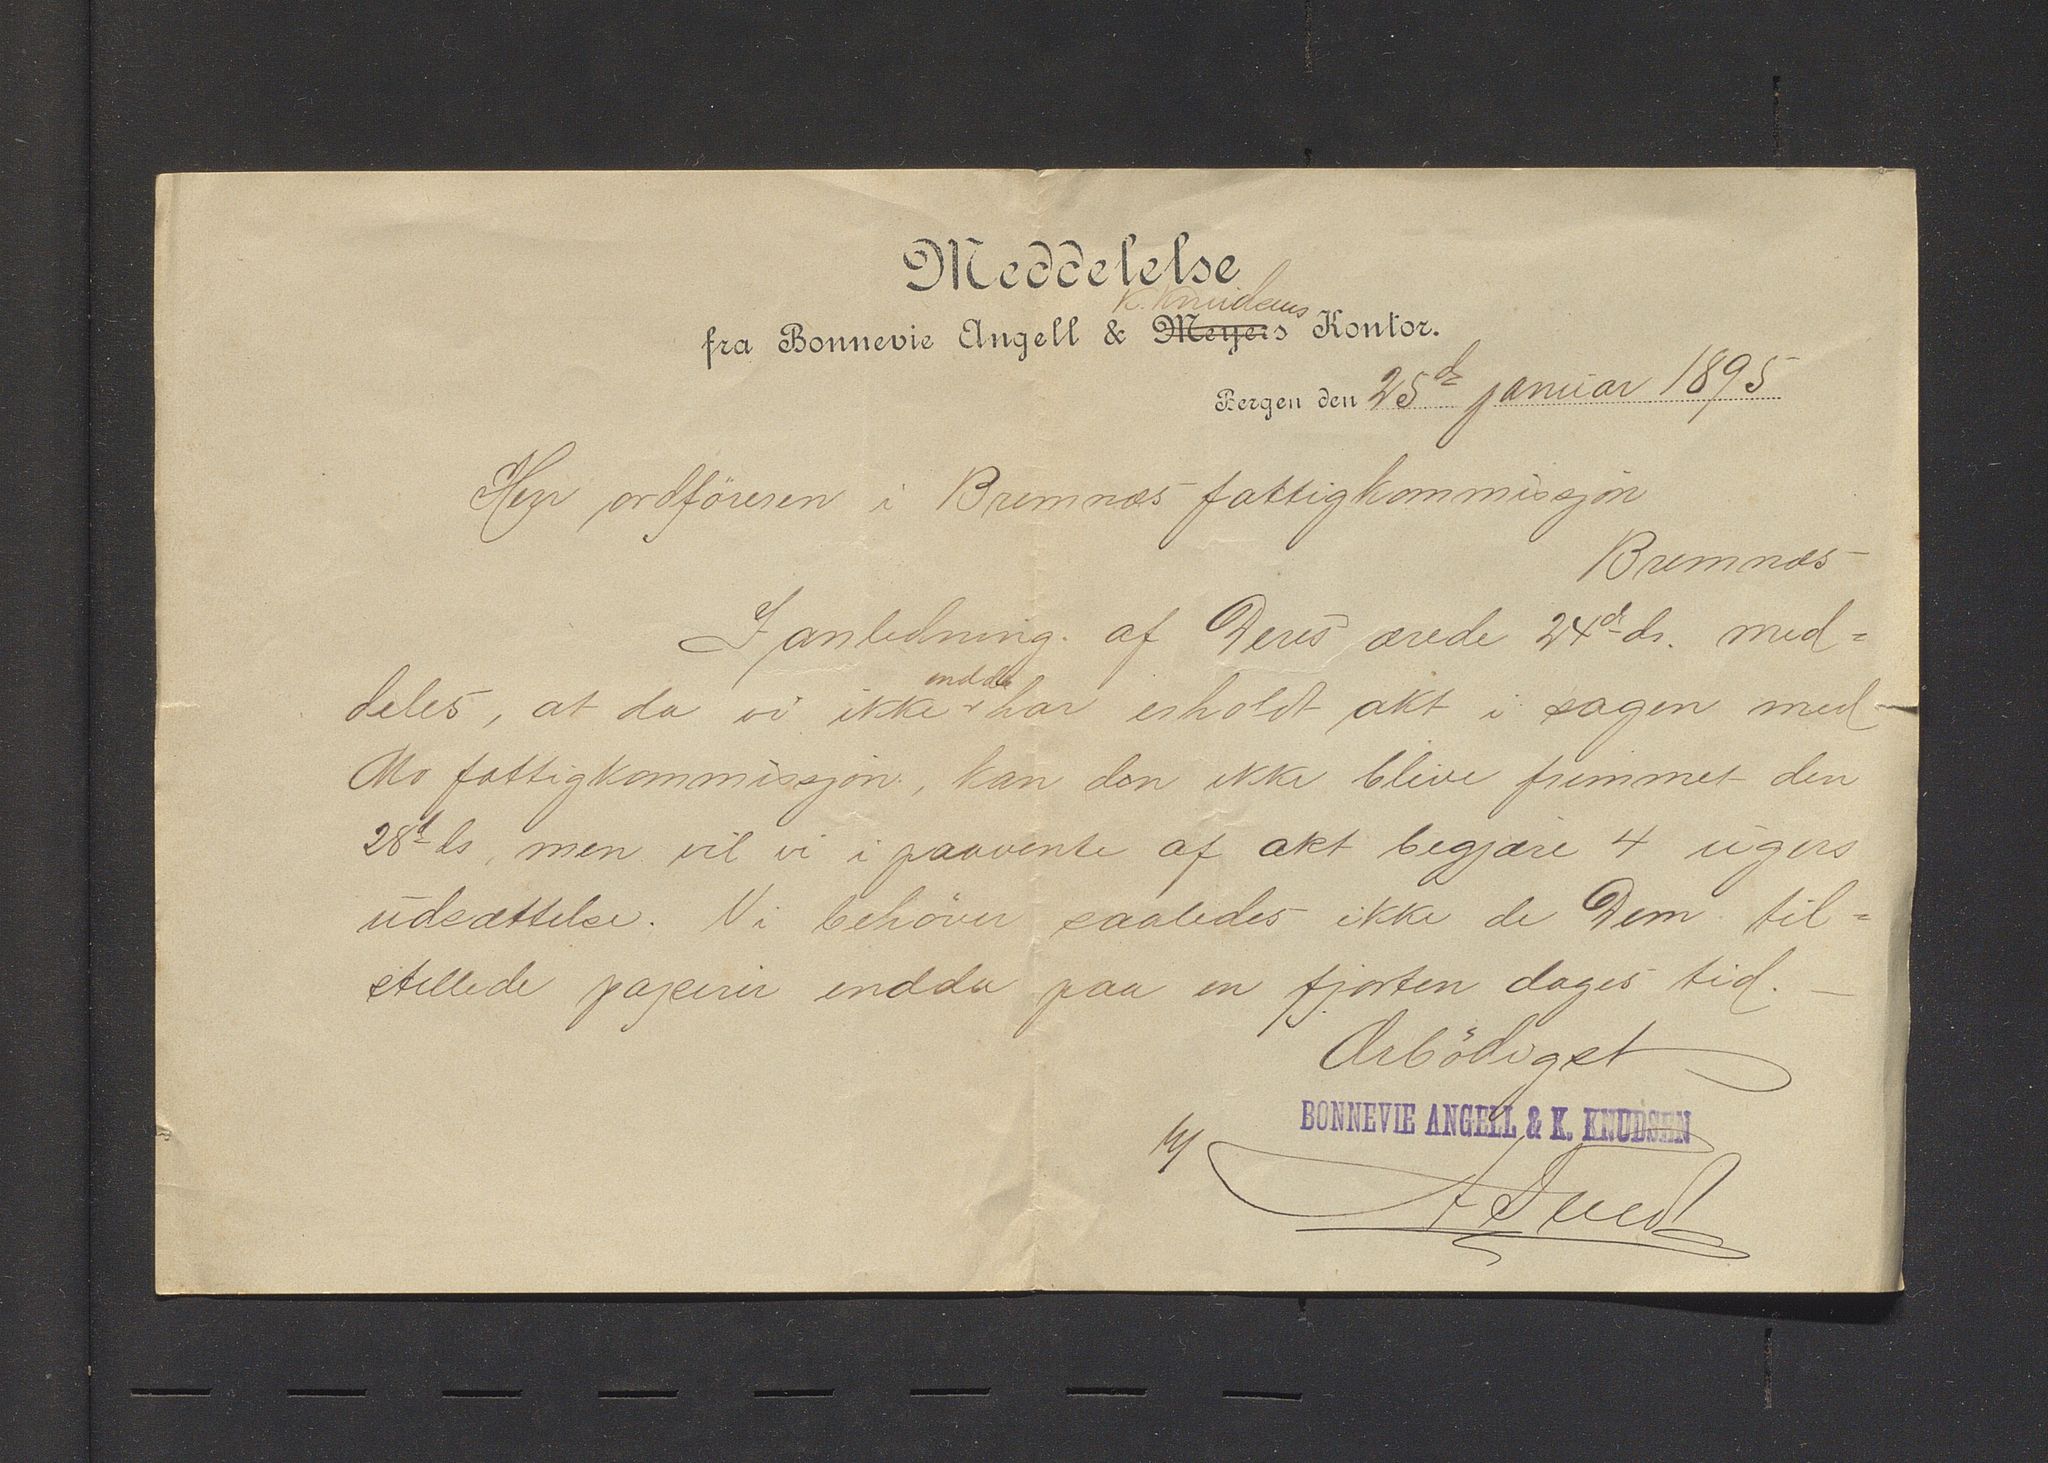 Meddelelse
K. Knudsens
fra Bonnevie Angell & Meyers Kontor.
Bergen den 25de januar 1895
Herr ordføreren i Bremnæs fattigkommissjon
Bremnæs
I anledning af Deres ærede 24d ds. med=
endda
deles, at da vi ikke har erholdt akt i sagen med
Mo fattigkommissjon, kan den ikke blive fremmet den
28d ds, men vil vi i paavente af akt begjære 4 ugers
udsættelse. Vi behøver saaledes ikke de Dem til=
stillede papirer endda paa en fjorten dages tid. —
Ærbödigst
BONNEVIE ANGELL & K. KNUDSEN